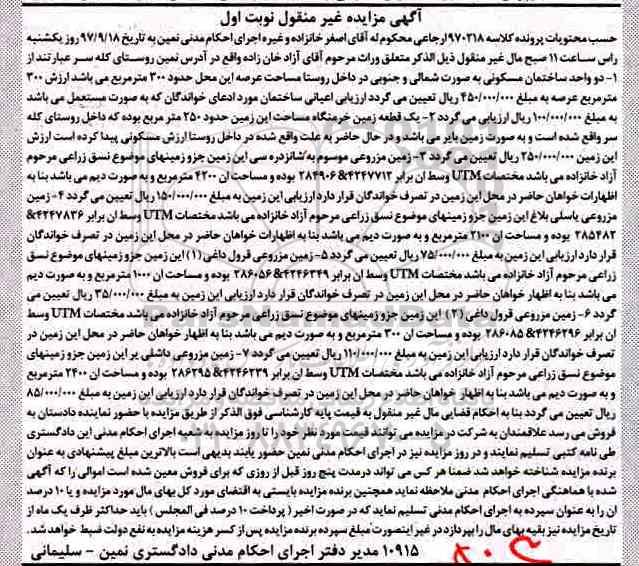 آگهی مزایده غیر منقول نوبت اول
حسب محتویات پرونده کلاسه ۹۷۰۲۱۸ ارجاعی محکوم له آقای اصغر خانزاده و غیره اجرای احکام مدنی نمین به تاریخ ۹۷/۹/۱۸ روز یکشنبه
راس ساعت ۱۱ صبح مال غیر منقول ذیل الذکر متعلق وراث مرحوم آقای آزاد خان زاده واقع در آدرس نمین روستای کله سر عبارتند از
۱- دو واحد ساختمان مسکونی به صورت شمالی و جنوبی در داخل روستا مساحت عرصه این محل حدود ۳۰۰ مترمربع می باشد ارزش ۳۰۰
مترمربع عرصه به مبلغ ۴۵۰/۰۰۰/۰۰۰ ریال تعیین می گردد ارزیابی اعیانی ساختمان مورد ادعای خواندگان که به صورت مستعمل می باشد
به مبلغ ۱۰۰/۰۰۰/۰۰۰ ریال ارزیابی می گردد ۲- یک قطعه زمین خرمنگاه مساحت این زمین حدود ۲۵۰ متر مربع بوده که داخل روستای کله
سر واقع شده است و به صورت زمین بایر می باشد و در حال حاضر به علت واقع شده در داخل روستا ارزش مسکونی پیدا کرده است ارزش
این زمین ۲۵۰/۰۰۰/۰۰۰ ریال تعیین می گردد ۳- زمین مزروعی موسوم به شانزدره سی این زمین جزو زمینهای موضوع نسق زراعی مرحوم
آزاد خانزاده می باشد مختصات UTM وسط ان برابر ۴۲۴۷۷۱۲& ۲۸۴۹۰۶ بوده و مساحت ان ۴۲۰۰ مترمربع و به صورت دیم می باشد بنا به
اظهارات خواهان حاضر در محل این زمین در تصرف خواندگان قرار دارد ارزیابی این زمین به مبلغ ۱۵۰/۰۰۰/۰۰۰ ریال تعیین می گردد ۴- زمین
مزروعی یاسلی بلاغ این زمین جزو زمینهای موضوع نسق زراعی مرحوم آزاد خانزاده می باشد مختصات UTM وسط ان برابر ۴۲۴۷۸۳۶&
۲۸۵۴۸۲ بوده و مساحت ان ۲۱۰۰ مترمربع و به صورت دیم می باشد بنا به اظهارات خواهان حاضر در محل این زمین در تصرف خواندگان
قرار دارد ارزیابی این زمین به مبلغ ۷۵/۰۰۰/۰۰۰ ریال تعیین می گردد ۵- زمین مزروعی قرول داغی (۱) این زمین جزو زمینهای موضوع نسق
زراعی مرحوم آزاد خانزاده می باشد مختصات UTM وسط ان برابر ۴۲۴۶۳۴۹& ۲۸۶۰۵۶ بوده و مساحت ان ۱۰۰۰ مترمربع و به صورت دیم
می باشد بنا به اظهار خواهان حاضر در محل این زمین در تصرف خواندگان قرار دارد ارزیابی این زمین به مبلغ ۳۵/۰۰۰/۰۰۰ ریال تعیین می
گردد ۶- زمین مزروعی قرول داغی (۲) این زمین جزو زمینهای موضوع نسق زراعی مرحوم آزاد خانزاده می باشد مختصات UTM وسط
ان برابر ۴۲۴۶۲۹۶& ۲۸۶۰۸۵ بوده و مساحت ان ۳۰۰ مترمربع و به صورت دیم می باشد بنا به اظهار خواهان حاضر در محل این زمین در
تصرف خواندگان قرار دارد ارزیابی این زمین به مبلغ ۱۱۰/۰۰۰/۰۰۰ ریال تعیین می گردد ۷- زمین مزروعی داشلی یر این زمین جزو زمینهای
موضوع نسق زراعی مرحوم آزاد خانزاده می باشد مختصات UTM وسط ان برابر ۴۲۴۶۲۳۹& ۲۸۶۲۹۵ بوده و مساحت ان ۲۴۰۰ مترمربع
و به صورت دیم می باشد بنا به اظهار خواهان حاضر در محل این زمین در تصرف خواندگان قرار دارد ارزیابی این زمین به مبلغ ۸۵/۰۰۰/۰۰۰
ریال تعیین می گردد بنا به احکام قضایی مال غیر منقول به قیمت پایه کارشناسی فوق الذکر از طریق مزایده با حضور نماینده دادستان به
فروش می رسد علاقمندان به شرکت در مزایده می توانند قیمت مورد نظر خود را تا روز مزایده به شعبه اجرای احکام مدنی این دادگستری
طی نامه کتبی تسلیم نمایند و در روز مزایده نیز در اجرای احکام مدنی نمین حضور یابند بدیهی است بالاترین مبلغ پیشنهادی به عنوان
برنده مزایده شناخته خواهد شد ضمنا هر کس می تواند درمدت پنج روز قبل از روزی که برای فروش معین شده است اموالی را که آگهی
شده با هماهنگی اجرای احکام مدنی ملاحظه نماید همچنین برنده مزایده بایستی به اقتضای مورد کل بهای مال مورد مزایده و یا ۱۰ درصد
ان را به عنوان سپرده به اجرای احکام مدنی تسلیم نماید که در صورت اخیر (پرداخت ۱۰ درصد فی المجلس) باید حداکثر ظرف یک ماه از
تاریخ مزایده نیز بقیه بهای مال را بپردازد در غیر اینصورت مبلغ سپرده برنده مزایده پس از کسر هزینه مزایده به نفع دولت ضبط خواهد شد.
۱۰۹۱۵ مدیر دفتر اجرای احکام مدنی دادگستری نمین - سلیمانی